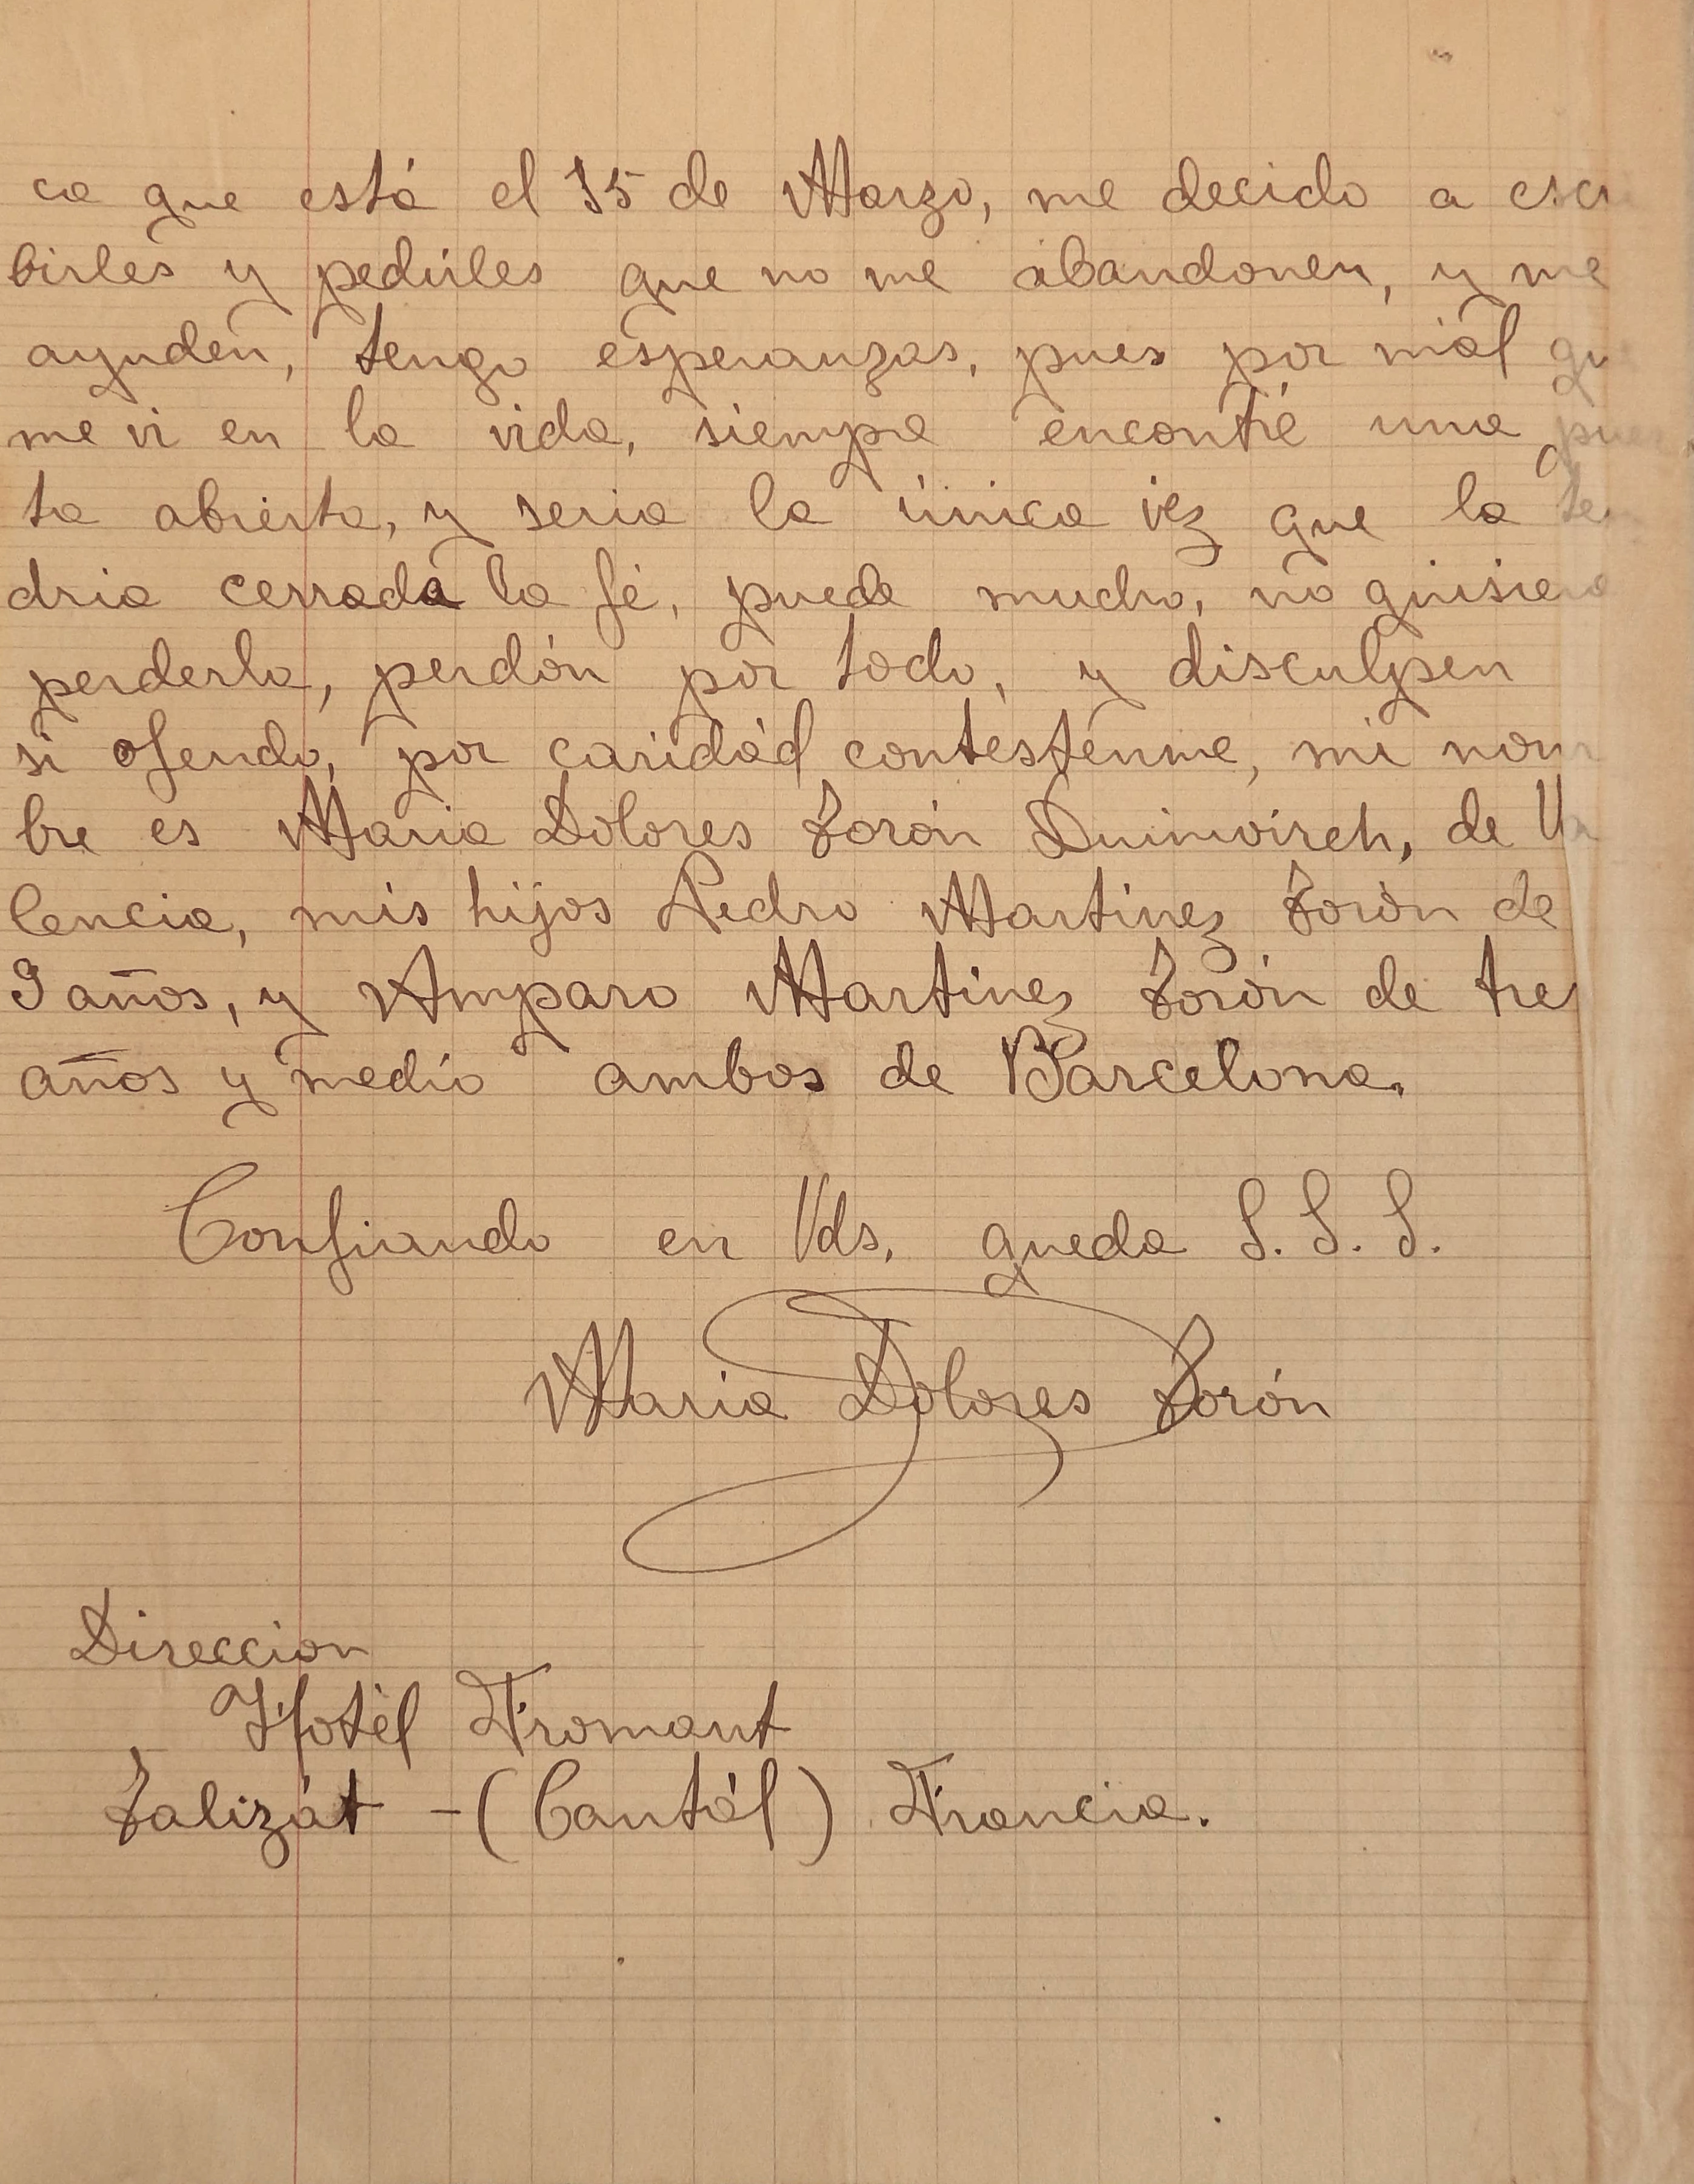 ca que está el 15 de Marzo, me decido a escri
birles y pedirles que no me abandonen, y me
ayuden, tengo esperanzas, pues por mál que
me vi en la vida, siempre encontré una puer
ta abierta, y seria la única vez que la ten
dria cerrada la fé, puede mucho, no quisiera
perderla, perdón por todo, y disculpen
si ofendo, por caridád contesténme, mi nom
bre es Maria Dolores Zorón, de Va
lencia, mis hijos Pedro Martinez Zorón de
9 años, y Amparo Martinez Zorón de tres
años y medio ambos de Barcelona.
Confiando en Vds. queda S. S. S.
Maria Dolores Zorón
Direccion
Hotél Fromant
Zalizát - (Cantál) Francia.